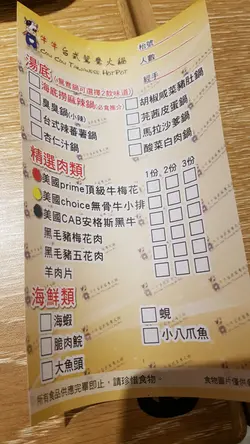 牛牛台式鴛鴦火鍋
Cou Cou Taiwanese Hot Pot
檯號
人數
經手
湯底
(鴛鴦鍋可選擇2款味道)
海底撈麻辣鍋(必食推介)
臭臭鍋(小辣)
台式辣番薯鍋
杏仁汁鍋
胡椒咸菜豬肚鍋
芫茜皮蛋鍋
馬拉沙爹鍋
酸菜白肉鍋
精選肉類
1份 2份 3份
美國prime頂級牛梅花
美國choice無骨牛小排
美國CAB安格斯黑牛
黑毛豬梅花肉
黑毛豬五花肉
羊肉片
海鮮類
海蝦
脆肉鯇
大魚頭
蜆
小八爪魚
所有食品供應完畢即止，請珍惜食物。
食物圖片僅供